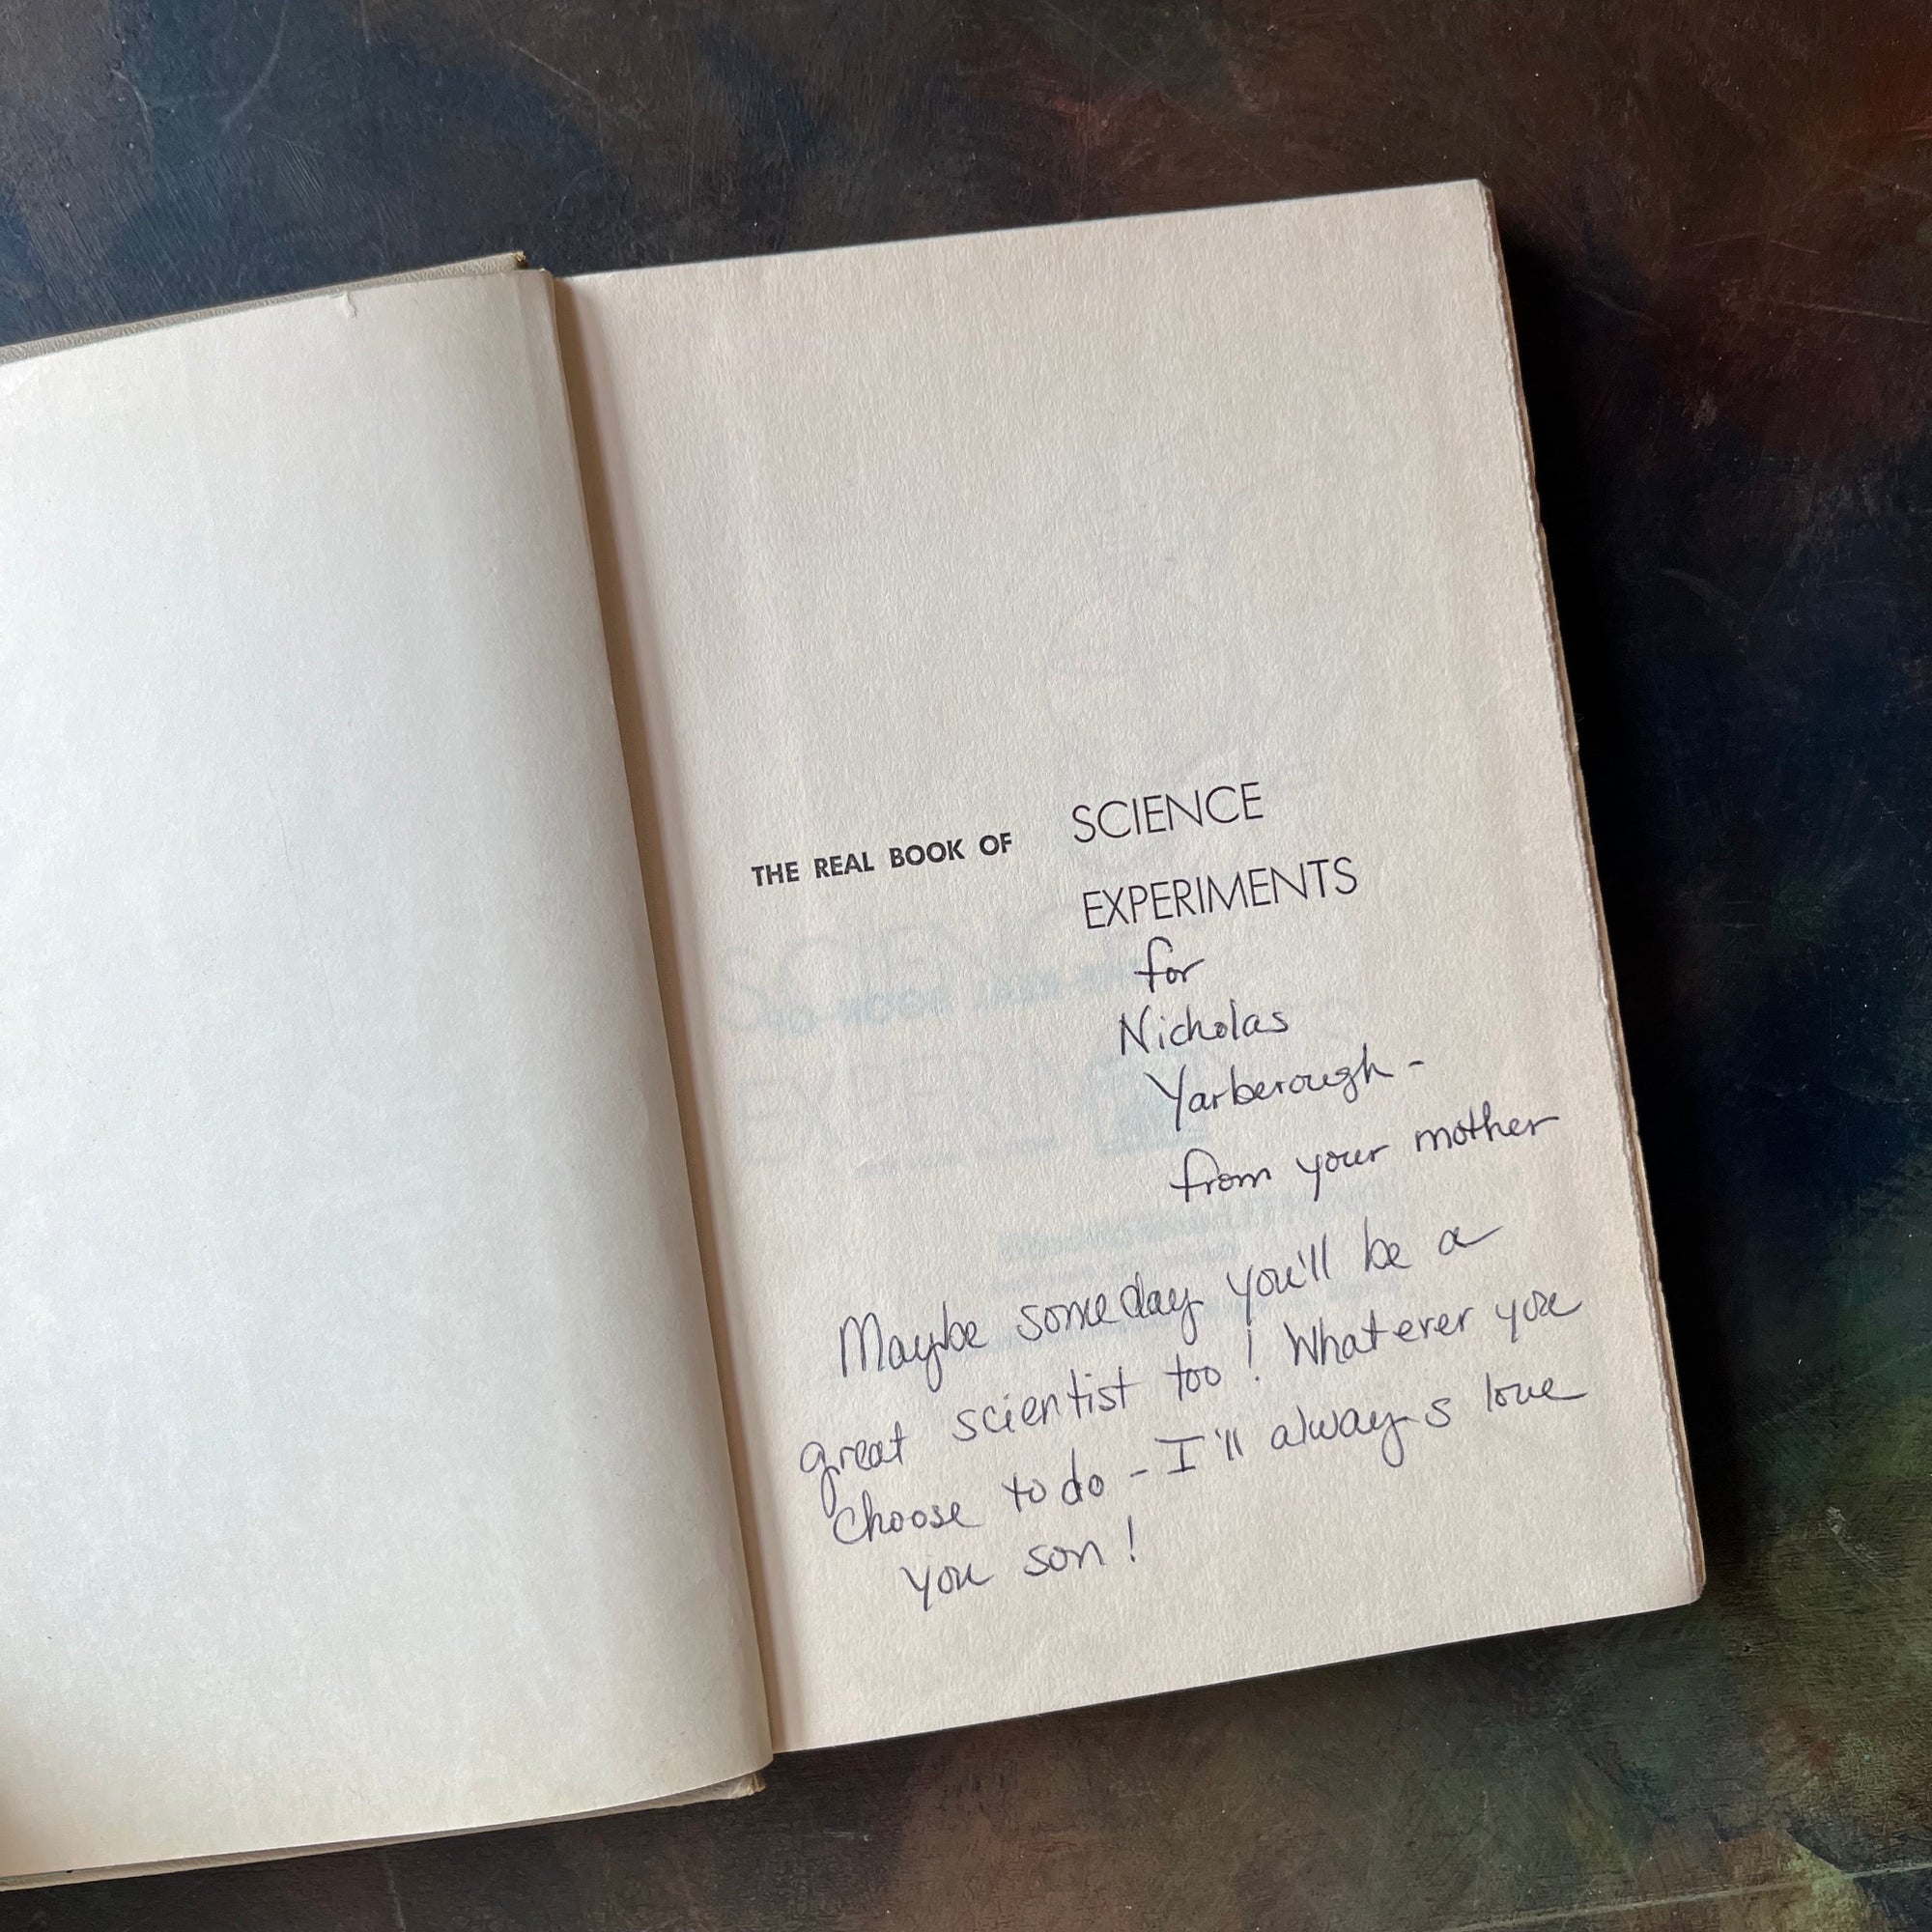 THE REAL BOOK OF SCIENCE
EXPERIMENTS
for
Nicholas
Yarberough -
from your mother
Maybe someday you'll be a
great scientist too! Whatever you
choose to do - I'll always love
you son!